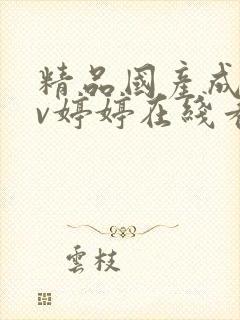 精品國産成
v婷婷在綫
雲枝